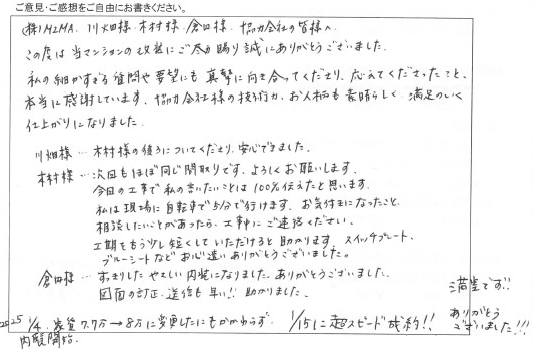 ご意見・ご感想をご自由にお書きください。
㈱MIMA. 川畑様. 木村様. 倉田様. 協力会社の皆様へ
この度は当マンションの改装にご尽力賜り誠にありがとうございました.
私の細かすぎる質問や要望にも真摯に向き合ってくださり、応えてくださったこと、
本当に感謝しています. 協力会社様の技術力、お人柄も素晴らしく、満足のいく
仕上がりになりました.
川畑様… 木村様の後ろについてくださり、安心できました.
木村様… 次回もほぼ同じ間取りです. よろしくお願いします.
今回の工事で私の言いたいことは100%伝えたと思います.
私は現場に自転車で5分で行けます. お気付きになったこと、
相談したいことがあったら、工事中にご連絡ください.
工期をもう少し短くしていただけると助かります. スイッチプレート、
ブルーシートなどお心遣いありがとうございました。
倉田様… すっきりしたやさしい内装になりました. ありがとうございました.
図面の訂正・送信も早い!! 助かりました.
満室です!!
ありがとうございました!!!
2025 1/4. 家賃7.7万→8万に変更したにもかかわらず. 1/15に超スピード成約!!
内覧開始.